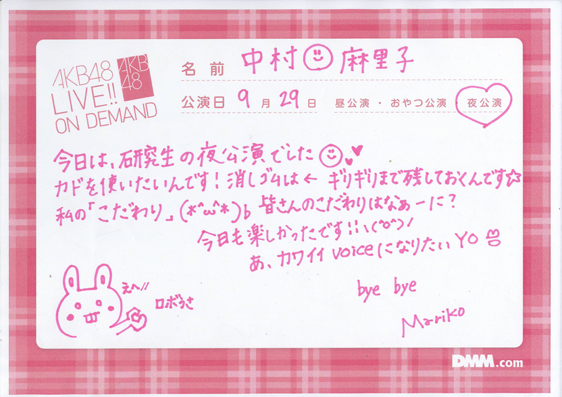 AKB48
LIVE!!
ON DEMAND
AKB
48
名前 中村 麻里子
公演日 9月29日 昼公演・おやつ公演・夜公演
今日は、研究生の夜公演でした
カドを使いたいんです!消しゴムは← ギリギリまで残しておくんです☆
私の「こだわり」(*^ω^*)b 皆さんのこだわりはなぁーに?
今日も楽しかったです!!\(^o^)/
あ、カワイイ voiceになりたいYO
えへ//
ロボうさ
bye bye
Mariko
DMM.com